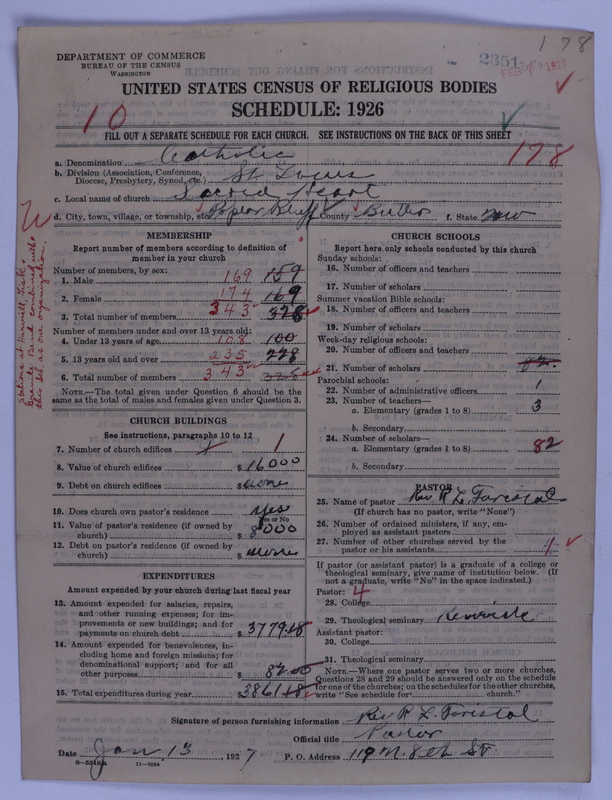 178
DEPARTMENT OF COMMERCE
BUREAU OF THE CENSUS
WASHINGTON
2351
FEB 1927
UNITED STATES CENSUS OF RELIGIOUS BODIES
SCHEDULE: 1926
10
FILL OUT A SEPARATE SCHEDULE FOR EACH CHURCH. SEE INSTRUCTIONS ON THE BACK OF THIS SHEET
178
a. Denomination Catholic
b. Division (Association, Conference, Diocese, Presbytery, Synod, etc.) St. Louis
c. Local name of church Sacred Heart
d. City, town, village, or township, etc. Poplar Bluff County Butler f. State Mo
MEMBERSHIP
Report number of members according to definition of
member in your church
Number of members, by sex:
1. Male 169 159
2. Female 174 169
3. Total number of members 343 328
Number of members under and over 13 years old:
4. Under 13 years of age 108 100
5. 13 years old and over 235 228
6. Total number of members 343 328
NOTE.—The total given under Question 6 should be the
same as the total of males and females given under Question 3.
CHURCH BUILDINGS
See instructions, paragraphs 10 to 12
7. Number of church edifices 1
8. Value of church edifices $16000
9. Debt on church edifices $none
10. Does church own pastor's residence? yes
Yes or No
11. Value of pastor's residence (if owned by
church) $8000
12. Debt on pastor's residence (if owned by
church) $none
EXPENDITURES
Amount expended by your church during last fiscal year
13. Amount expended for salaries, repairs,
and other running expenses; for im-
provements or new buildings; and for
payments on church debt $3779.48
14. Amount expended for benevolences, in-
cluding home and foreign missions; for
denominational support; and for all
other purposes $82.00
15. Total expenditures during year $3861.48
CHURCH SCHOOLS
Report here only schools conducted by this church
Sunday schools:
16. Number of officers and teachers
17. Number of scholars
Summer vacation Bible schools:
18. Number of officers and teachers
19. Number of scholars
Week-day religious schools:
20. Number of officers and teachers
21. Number of scholars 82
Parochial schools:
22. Number of administrative officers 1
23. Number of teachers—
a. Elementary (grades 1 to 8) 3
b. Secondary
24. Number of scholars—
a. Elementary (grades 1 to 8) 82
b. Secondary
PASTOR
25. Name of pastor Rev R L Foristal
(If church has no pastor, write "None")
26. Number of ordained ministers, if any, em-
ployed as assistant pastors
27. Number of other churches served by the
pastor or his assistants
If pastor (or assistant pastor) is a graduate of a college or
theological seminary, give name of institution below. (If
not a graduate, write "No" in the space indicated.)
Pastor: 4
28. College
29. Theological seminary Kenrick
Assistant pastor:
30. College
31. Theological seminary
NOTE.—Where one pastor serves two or more churches,
Questions 28 and 29 should be answered only on the schedule
for one of the churches; on the schedules for the other churches,
write "See schedule for church."
Signature of person furnishing information Rev R L Foristal
Official title Pastor
Date Jan 13, 1927 P. O. Address 119 N. 8th St
8—5518a 11—9054